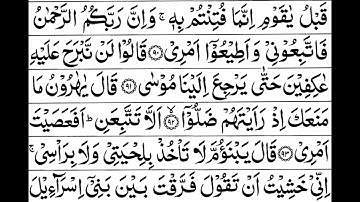 قَبْلُ يٰقَوْمِ اِنَّمَا فُتِنْتُمْ بِهٖ ۚ وَاِنَّ رَبَّكُمُ الرَّحْمٰنُ
فَاتَّبِعُوْنِيْ وَاَطِيْعُوْٓا اَمْرِيْ ﴿۹۰﴾ قَالُوْا لَنْ نَّبْرَحَ عَلَيْهِ
عٰكِفِيْنَ حَتّٰى يَرْجِعَ اِلَيْنَا مُوْسٰى ﴿۹۱﴾ قَالَ يٰهٰرُوْنُ مَا
مَنَعَكَ اِذْ رَاَيْتَهُمْ ضَلُّوْٓا ﴿۹۲﴾ اَلَّا تَتَّبِعَنِ ؕ اَفَعَصَيْتَ
اَمْرِيْ ﴿۹۳﴾ قَالَ يَبْنَؤُمَّ لَا تَاْخُذْ بِلِحْيَتِيْ وَلَا بِرَاْسِيْ ۚ
اِنِّيْ خَشِيْتُ اَنْ تَقُوْلَ فَرَّقْتَ بَيْنَ بَنِيْٓ اِسْرَآءِيْلَ